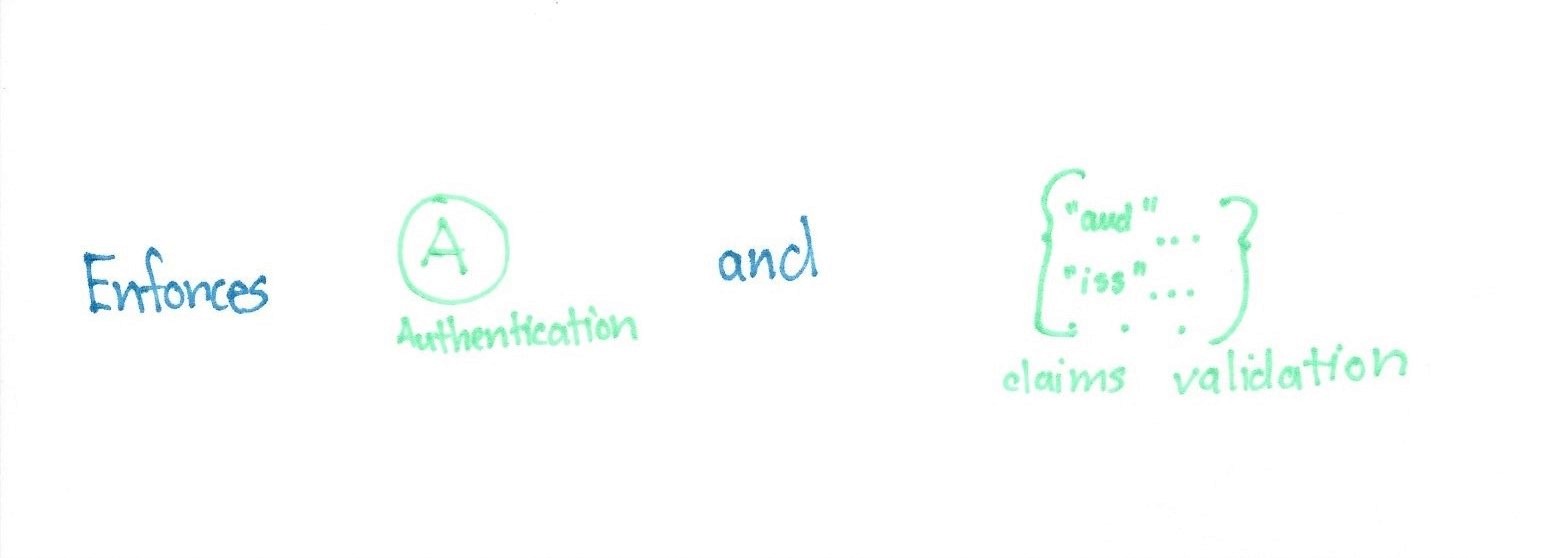 Enforces
A
Authentication
and
{ "aud"...
"iss"...
. . . }
claims validation